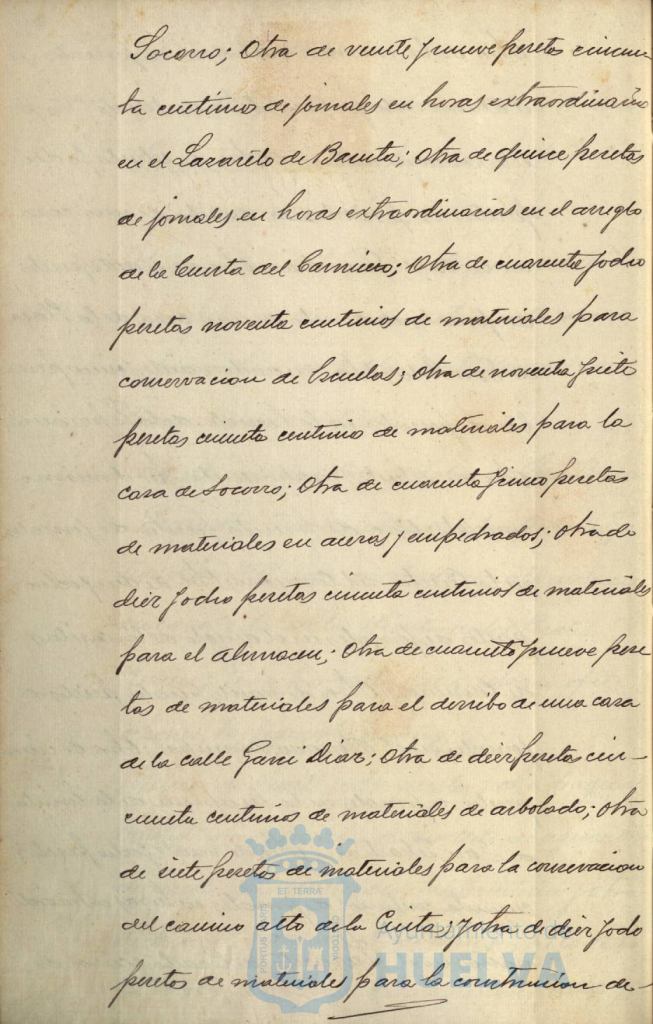 Socorro; Otra de veinte y nueve pesetas cincuen-
ta centimos de jornales en horas extraordinarias
en el Lazareto de Bacuta; Otra de quince pesetas
de jornales en horas extraordinarias en el arreglo
de la Cuesta del Carnicero; Otra de cuarenta y ocho
pesetas noventa centimos de materiales para
conservacion de Escuelas; Otra de noventa y siete
pesetas cincuenta centimos de materiales para la
casa de Socorro; Otra de cuarenta y cinco pesetas
de materiales en aceras y empedrados; Otra de
diez y ocho pesetas cincuenta centimos de materiales
para el almacen; Otra de cuarenta y nueve pese
tas de materiales para el derribo de una casa
de la calle Garci Diaz; Otra de diez pesetas cin-
cuenta centimos de materiales de arbolado; Otra
de siete pesetas de materiales para la conservacion
del camino alto de la Cinta; y otra de diez y ocho
pesetas de materiales para la construccion de-
ET TERRA
Ayuntamiento de
HUELVA